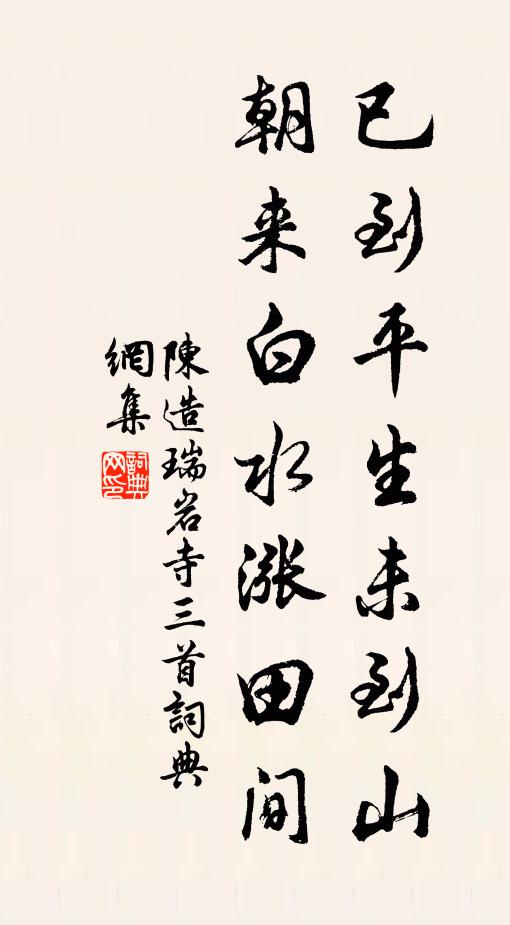 已到平生未到山
朝来白水漲田間
陳造瑞岩寺三首詞典
網集
詞典網印